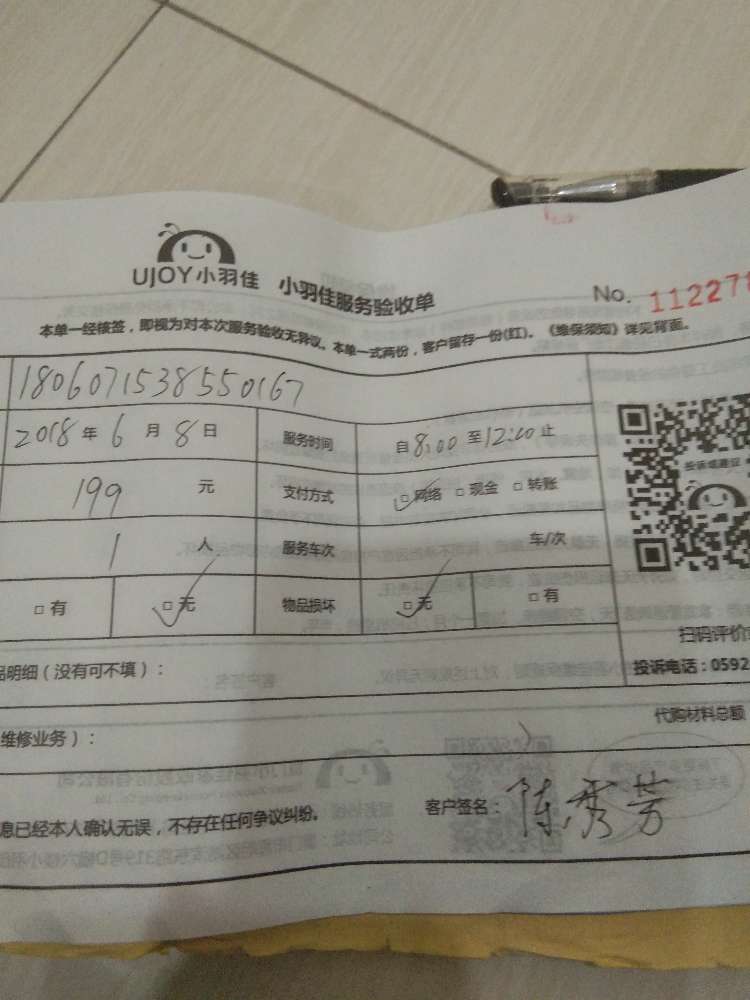 UJOY小羽佳 小羽佳服务验收单
No. 112278
本单一经核签，即视为对本次服务验收无异议。本单一式两份，客户留存一份(红)。《维保须知》详见背面。
1806071538550167
2018年6月8日 服务时间 自8:00至12:00止
199元 支付方式 □网络 □现金 □转账
投诉或建议
1人 服务车次 车/次
□有 □无 物品损坏 □无 □有
扫码评价
品明细（没有可不填）：
投诉电话：0592
代购材料总额
维修业务）：
息已经本人确认无误，不存在任何争议纠纷。
客户签名：陈秀芳